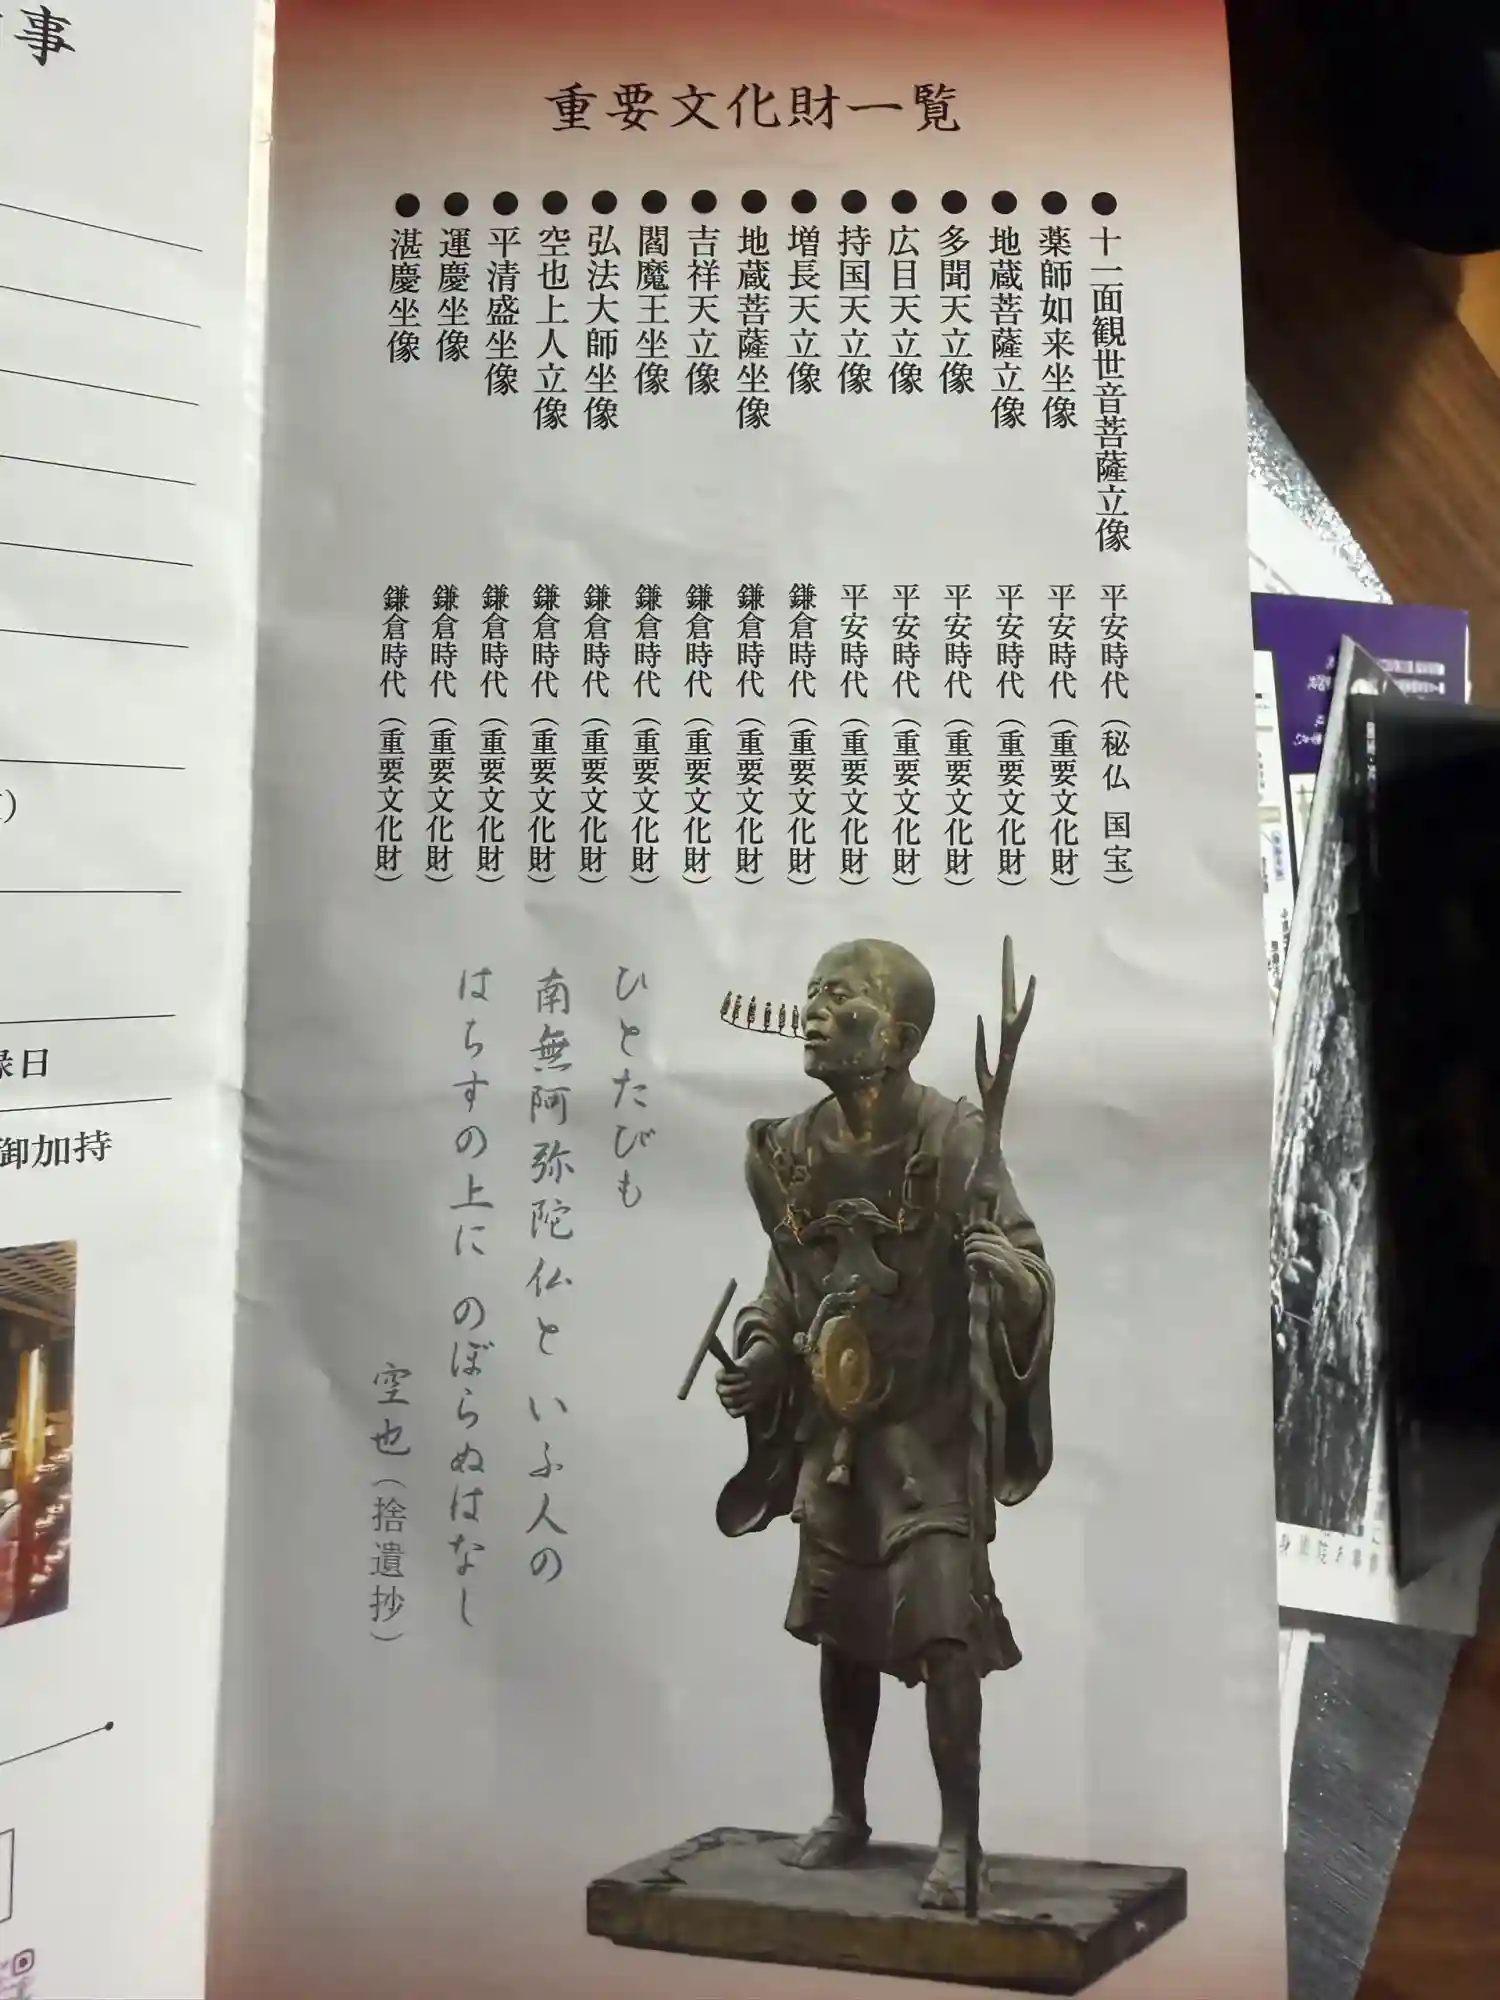 事
録日
御加持
重要文化財一覧
●十一面観世音菩薩立像 平安時代（秘仏 国宝）
●薬師如来坐像 平安時代（重要文化財）
●地蔵菩薩立像 平安時代（重要文化財）
●多聞天立像 平安時代（重要文化財）
●広目天立像 平安時代（重要文化財）
●持国天立像 平安時代（重要文化財）
●増長天立像 鎌倉時代（重要文化財）
●地蔵菩薩坐像 鎌倉時代（重要文化財）
●吉祥天立像 鎌倉時代（重要文化財）
●閻魔王坐像 鎌倉時代（重要文化財）
●弘法大師坐像 鎌倉時代（重要文化財）
●空也上人立像 鎌倉時代（重要文化財）
●平清盛坐像 鎌倉時代（重要文化財）
●運慶坐像 鎌倉時代（重要文化財）
●湛慶坐像 鎌倉時代（重要文化財）
ひとたびも
南無阿弥陀仏といふ人の
はちすの上に のぼらぬはなし
空也（捨遺抄）